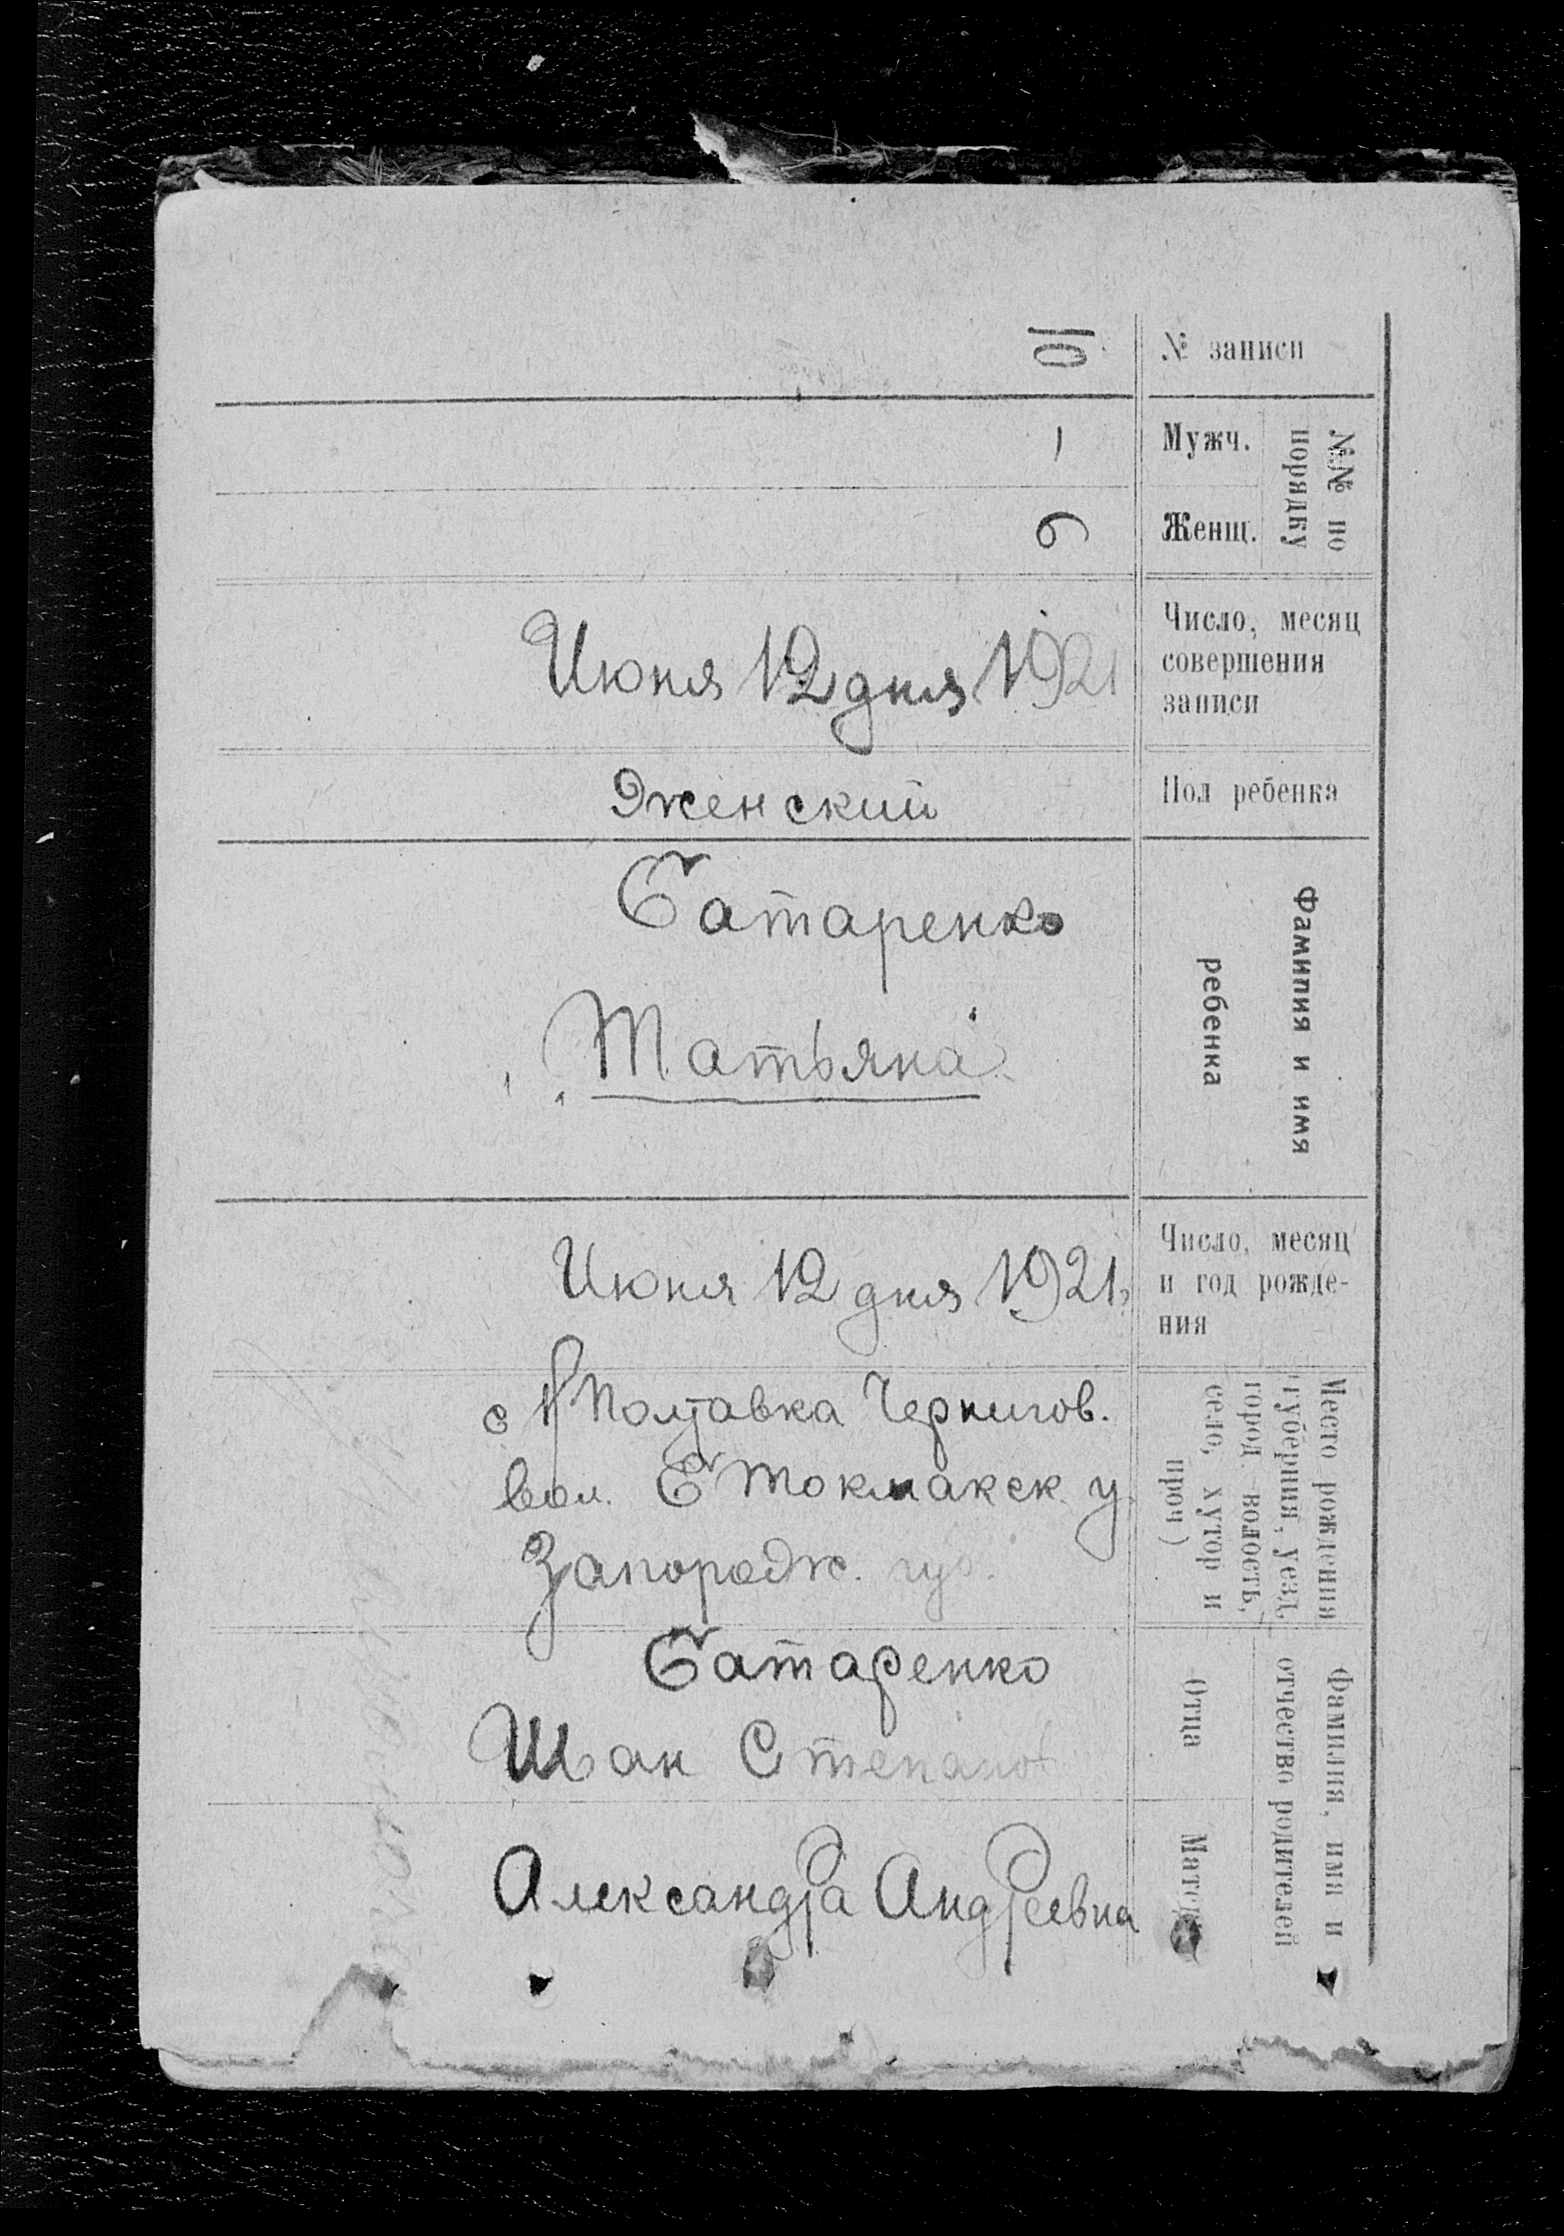 № записи
10
№№ по
порядку
Мужч.
—
Женщ.
6
Число, месяц
совершения
записи
Июня 12 дня 1921
Пол ребенка
Женский
Фамилия и имя
ребенка
Сатаренко
Татьяна
Число, месяц
и год рожде-
ния
Июня 12 дня 1921
Место рождения
(губерния, уезд,
город. волость,
село, хутор и
проч)
с Н Полтавка Чернигов.
вол. Б Токмакск у.
Запорож. губ.
Фамилия, имя и
отчество родителей
Отца
Сатаренко
Иван Степанов
Матери
Александра Андреевна